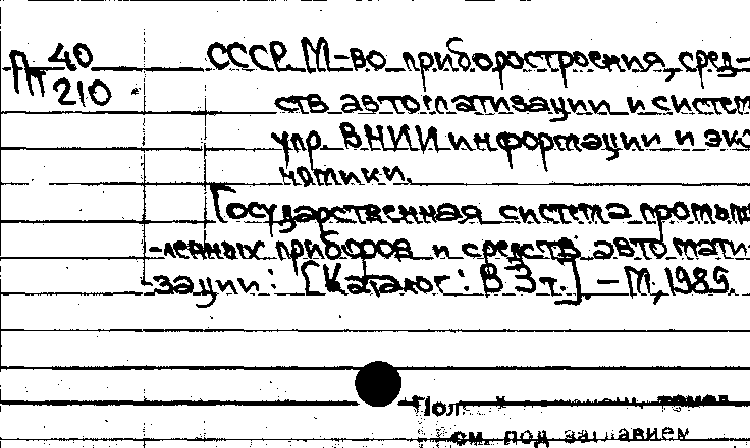 Пт 40
210
СССР. М-во приборостроения, сред-
ств автоматизации и систем
упр. ВНИИ информации и эко
номики.
Государственная система промыш
-ленных приборов и средств автомати-
-зации: [Каталог: В 3 т.]. – М., 1989.
см. под заглавием